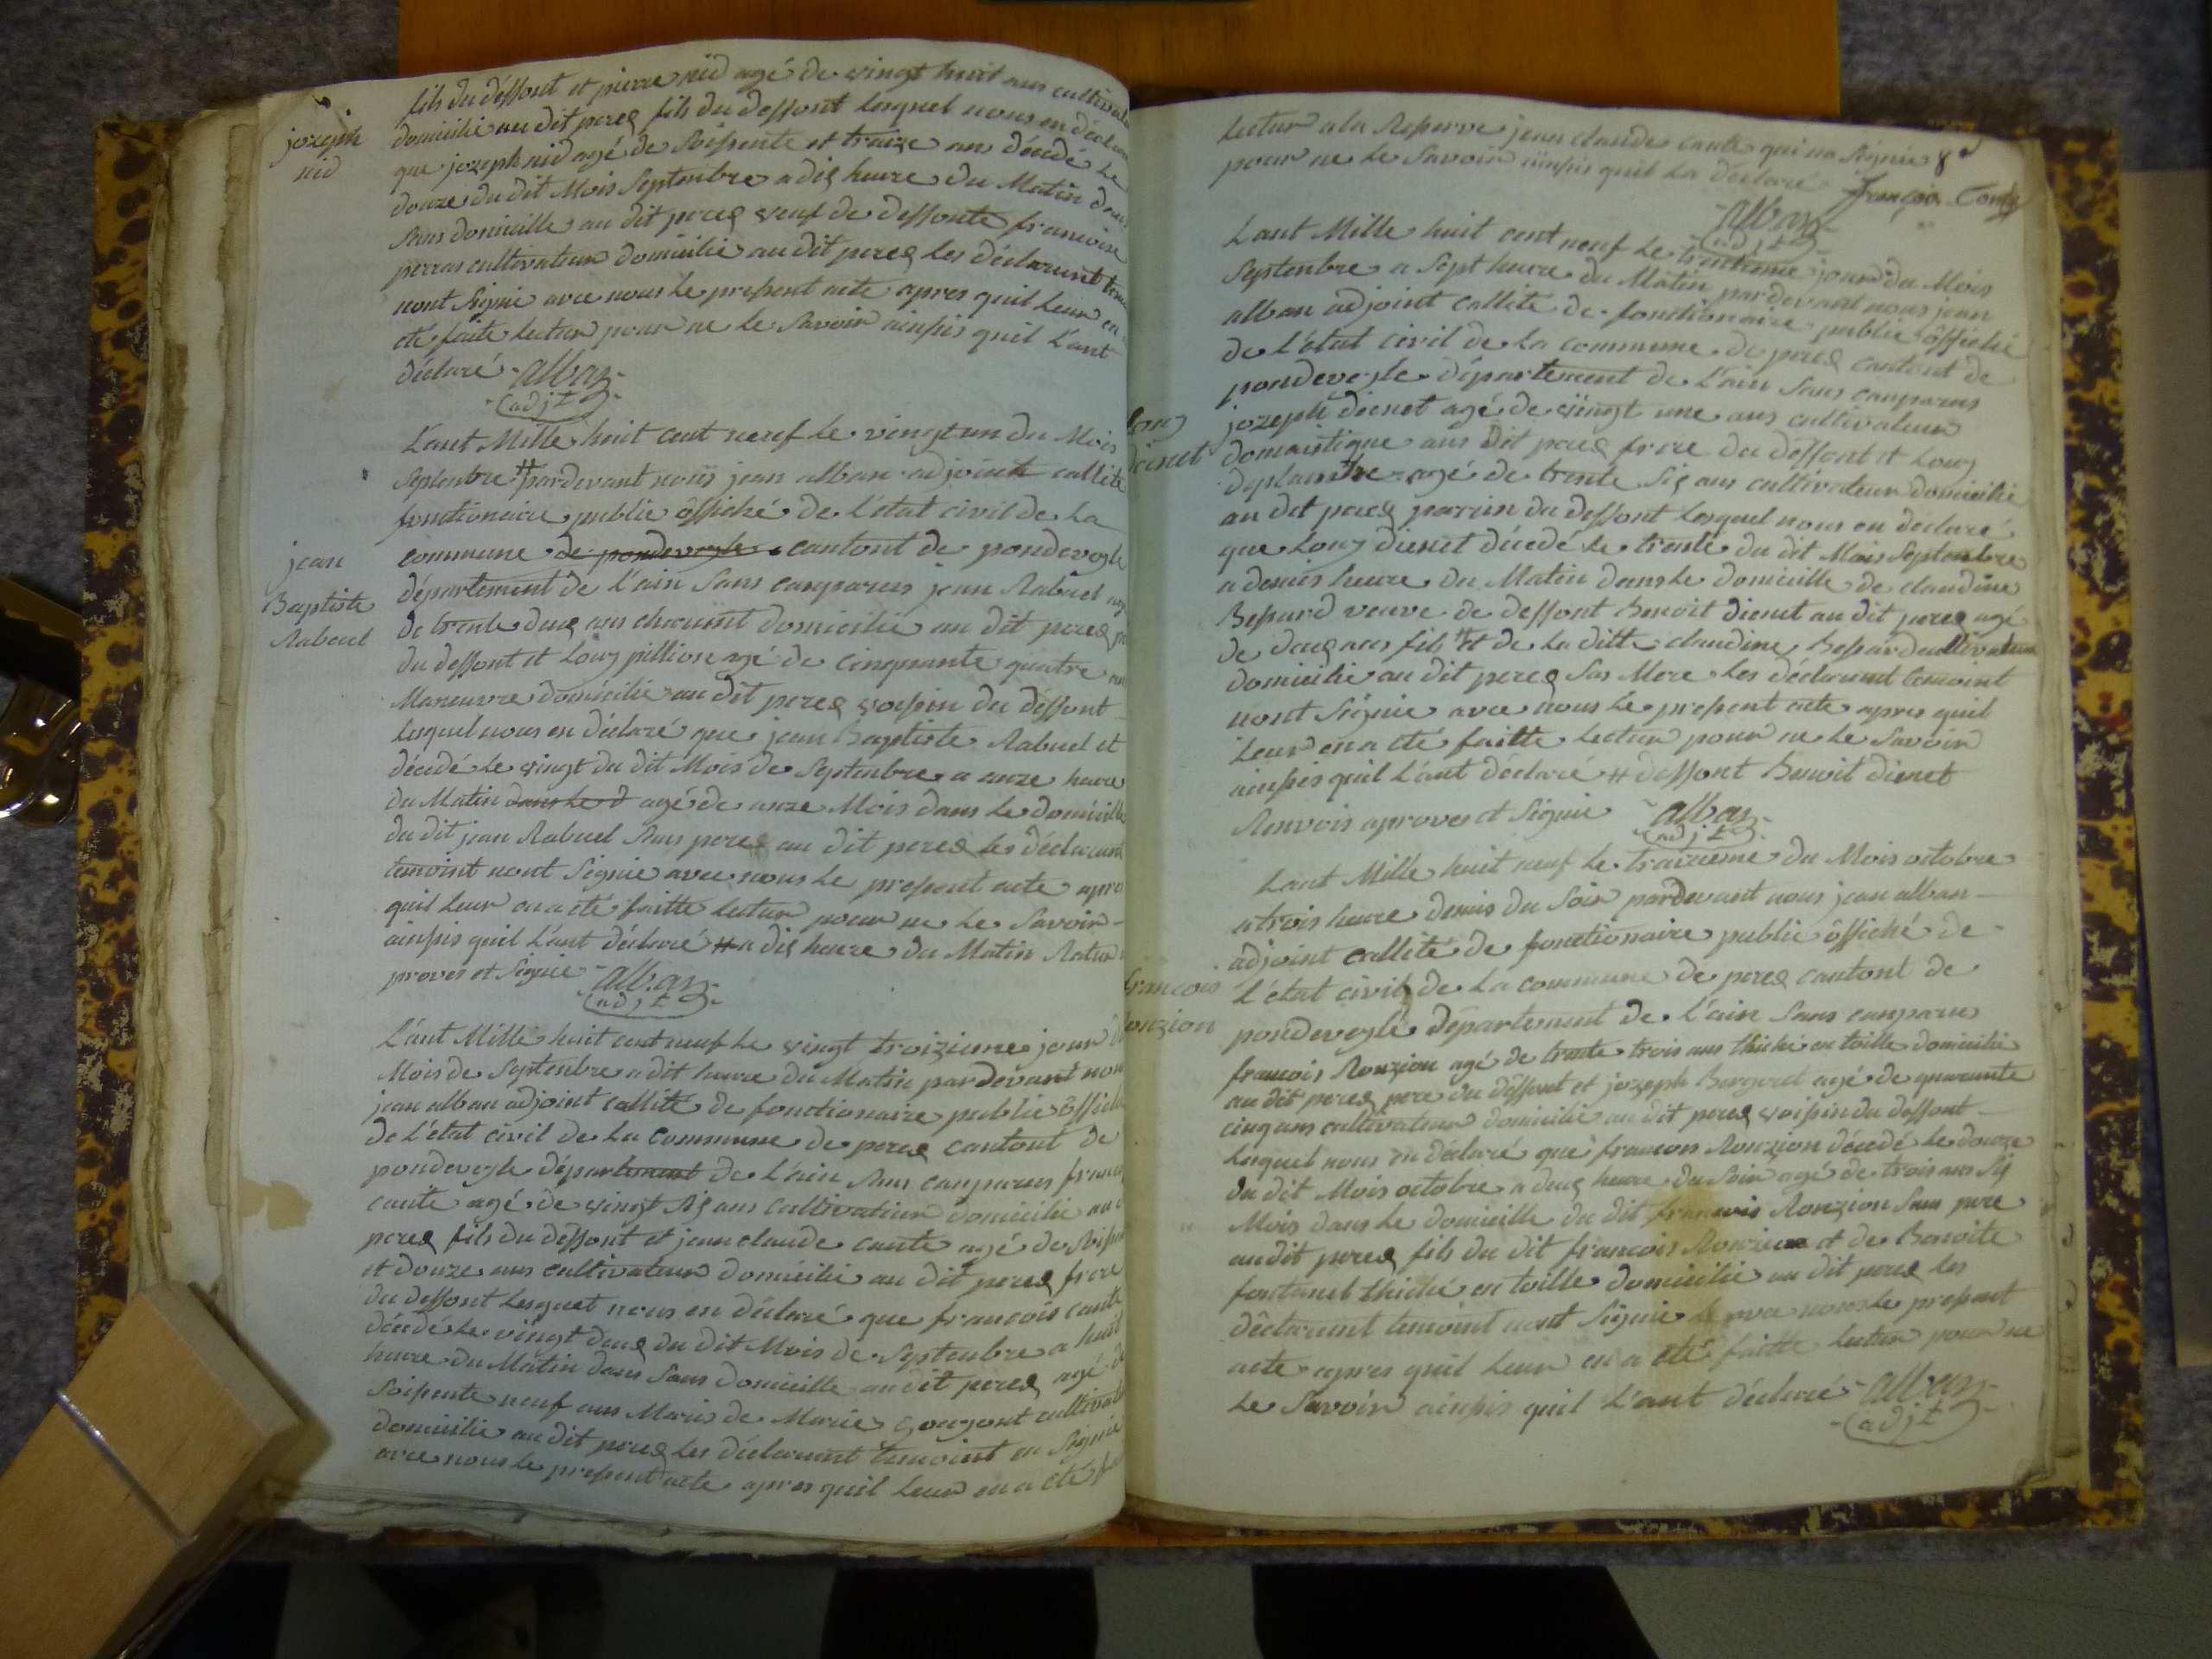 jozeph
nid
fils du deffont et pierre nid agé de vingt huit ans cultivat
domicilié au dit perex fils du deffont lesquel nous en déclar
que jozeph nid agé de Soissente et traize ans décedé le
douze du dit Mois Septenbre a dix heure du Matin dans
Sans domicille au dit perex veuf de deffonte francoise
perras cultivateur domicilié au dit perex les déclarunt temo
nont Signie avec nous le present acte apres quil leur en
eté faite lectur pour ne le Savoir ainssis quil l'ant
déclaré alban
adjt
jean
Baptiste
Rabuel
L'ant Mille huit cent neuf le vingt un du Mois
Septenbre # pardevant nous jean alban adjoint callite
fonctionaire public ôffiché de L'état civil de La
commune de pondevegle cantont de pondevegle
département de L'ain Sans conparus jean Rabuel agé
de trente deux ans chacunt domicilié au dit perex pe
du deffont et Louy pillion agé de cinquante quatre ans
Maneuvre domicilié au dit perex voissin du deffont
lesquel nous en déclaré que jean Baptiste Rabuel et
décedé le vingt du dit Mois de Septenbre a onze heure
du Matin dans le d agé de onze Mois dans le domicille
du dit jean Rabuel Sans pere au dit perex les déclarunt
temoint nont Signie avec nous le present acte apres
quil leur en a eté faitte lectur pour ne le Savoir
ainssis quil l'ant déclaré # a dix heure du Matin Ratur
proves et Signie alban
adjt
L'ant Mille huit cent neuf le vingt troizieme jour d
Mois de Septenbre a dit heure du Matin pardevant nou
jean alban adjoint callité de fonctionaire public ôffiché
de L'état civil de La commune de perex cantont de
pondevegle département de L'ain Sans conparus franco
caute agé de vingt Six ans cultivateur domicilié au d
perex fils du deffont et jean claude caute agé de Soissent
et douze ans cultivateur domicilié au dit perex frere
du deffont lesquel nous en déclaré que francois caute
décedé le vingt deux du dit Mois de Septenbre a huit
heure du Matin dans Sans domicille au dit perex agé de
Soissente neuf ans Maris de Marie Goyont cultivat
domicilié au dit perex les déclarunt temoint en Signie
avec nous le present acte apres quil leur en a eté fai
lectur a la Reserve jean claude caute qui na Signie 8
pour ne le Savoir ainssis quil la déclaré
françois Conte
alban
adjt
Louy
dienet
L'ant Mille huit cent neuf le trentieme jour du Mois
Septenbre a Sept heure du Matin pardevant nous jean
alban adjoint callité de fonctionaire public ôffiché
de L'état civil de La commune de perex cantont de
pondevegle département de L'ain Sans conparus
jozeph dienet agé de vingt une ans cultivateur
domaistique aus dit perex frere du deffont et Louy
deplanche agé de trente Six ans cultivateur domicilié
au dit perex parain du deffont lesquel nous en déclaré
que Louy dienet décedé le trente du dit Mois Septenbre
a demis heure du Matin dans le domicille de claudine
Bessard veuve de deffont Benoit dienet au dit perex agé
de deux ans fils # et de la ditte claudine Bessard cultivateur
domicilié au dit perex Sas Mere les déclarunt temoint
nont Signie avec nous le present acte apres quil
leur en a eté faitte lectur pour ne le Savoir
ainssis quil l'ant déclaré # deffont Benoit dienet
Renvois aproves et Signie alban
adjt
francois
Ronzion
L'ant Mille huit neuf le traizieme du Mois octobre
a trois heure demis du Soir pardevant nous jean alban
adjoint callité de fonctionaire public ôffiché de
L'état civil de La commune de perex cantont de
pondevegle département de L'ain Sans conparus
francois Ronzion agé de trente trois ans thiché en toille domicilié
au dit perex pere du deffont et jozeph Bergeret agé de quarante
cinq ans cultivateur domicilié au dit perex voissin du deffont
lesquel nous en déclaré que francois Ronzion décedé le douze
du dit Mois octobre a deux heure du Soir agé de trois ans Six
Mois dans le domicille du dit francois Ronzion Sans pere
au dit perex fils du dit francois Ronzion et de Benoite
fontanel thiché en toille domicilié au dit perex les
déclarunt temoint nont Signie avec nous le present
acte apres quil leur en a eté faitte lectur pour ne
le Savoir ainssis quil l'ant déclaré alban
adjt